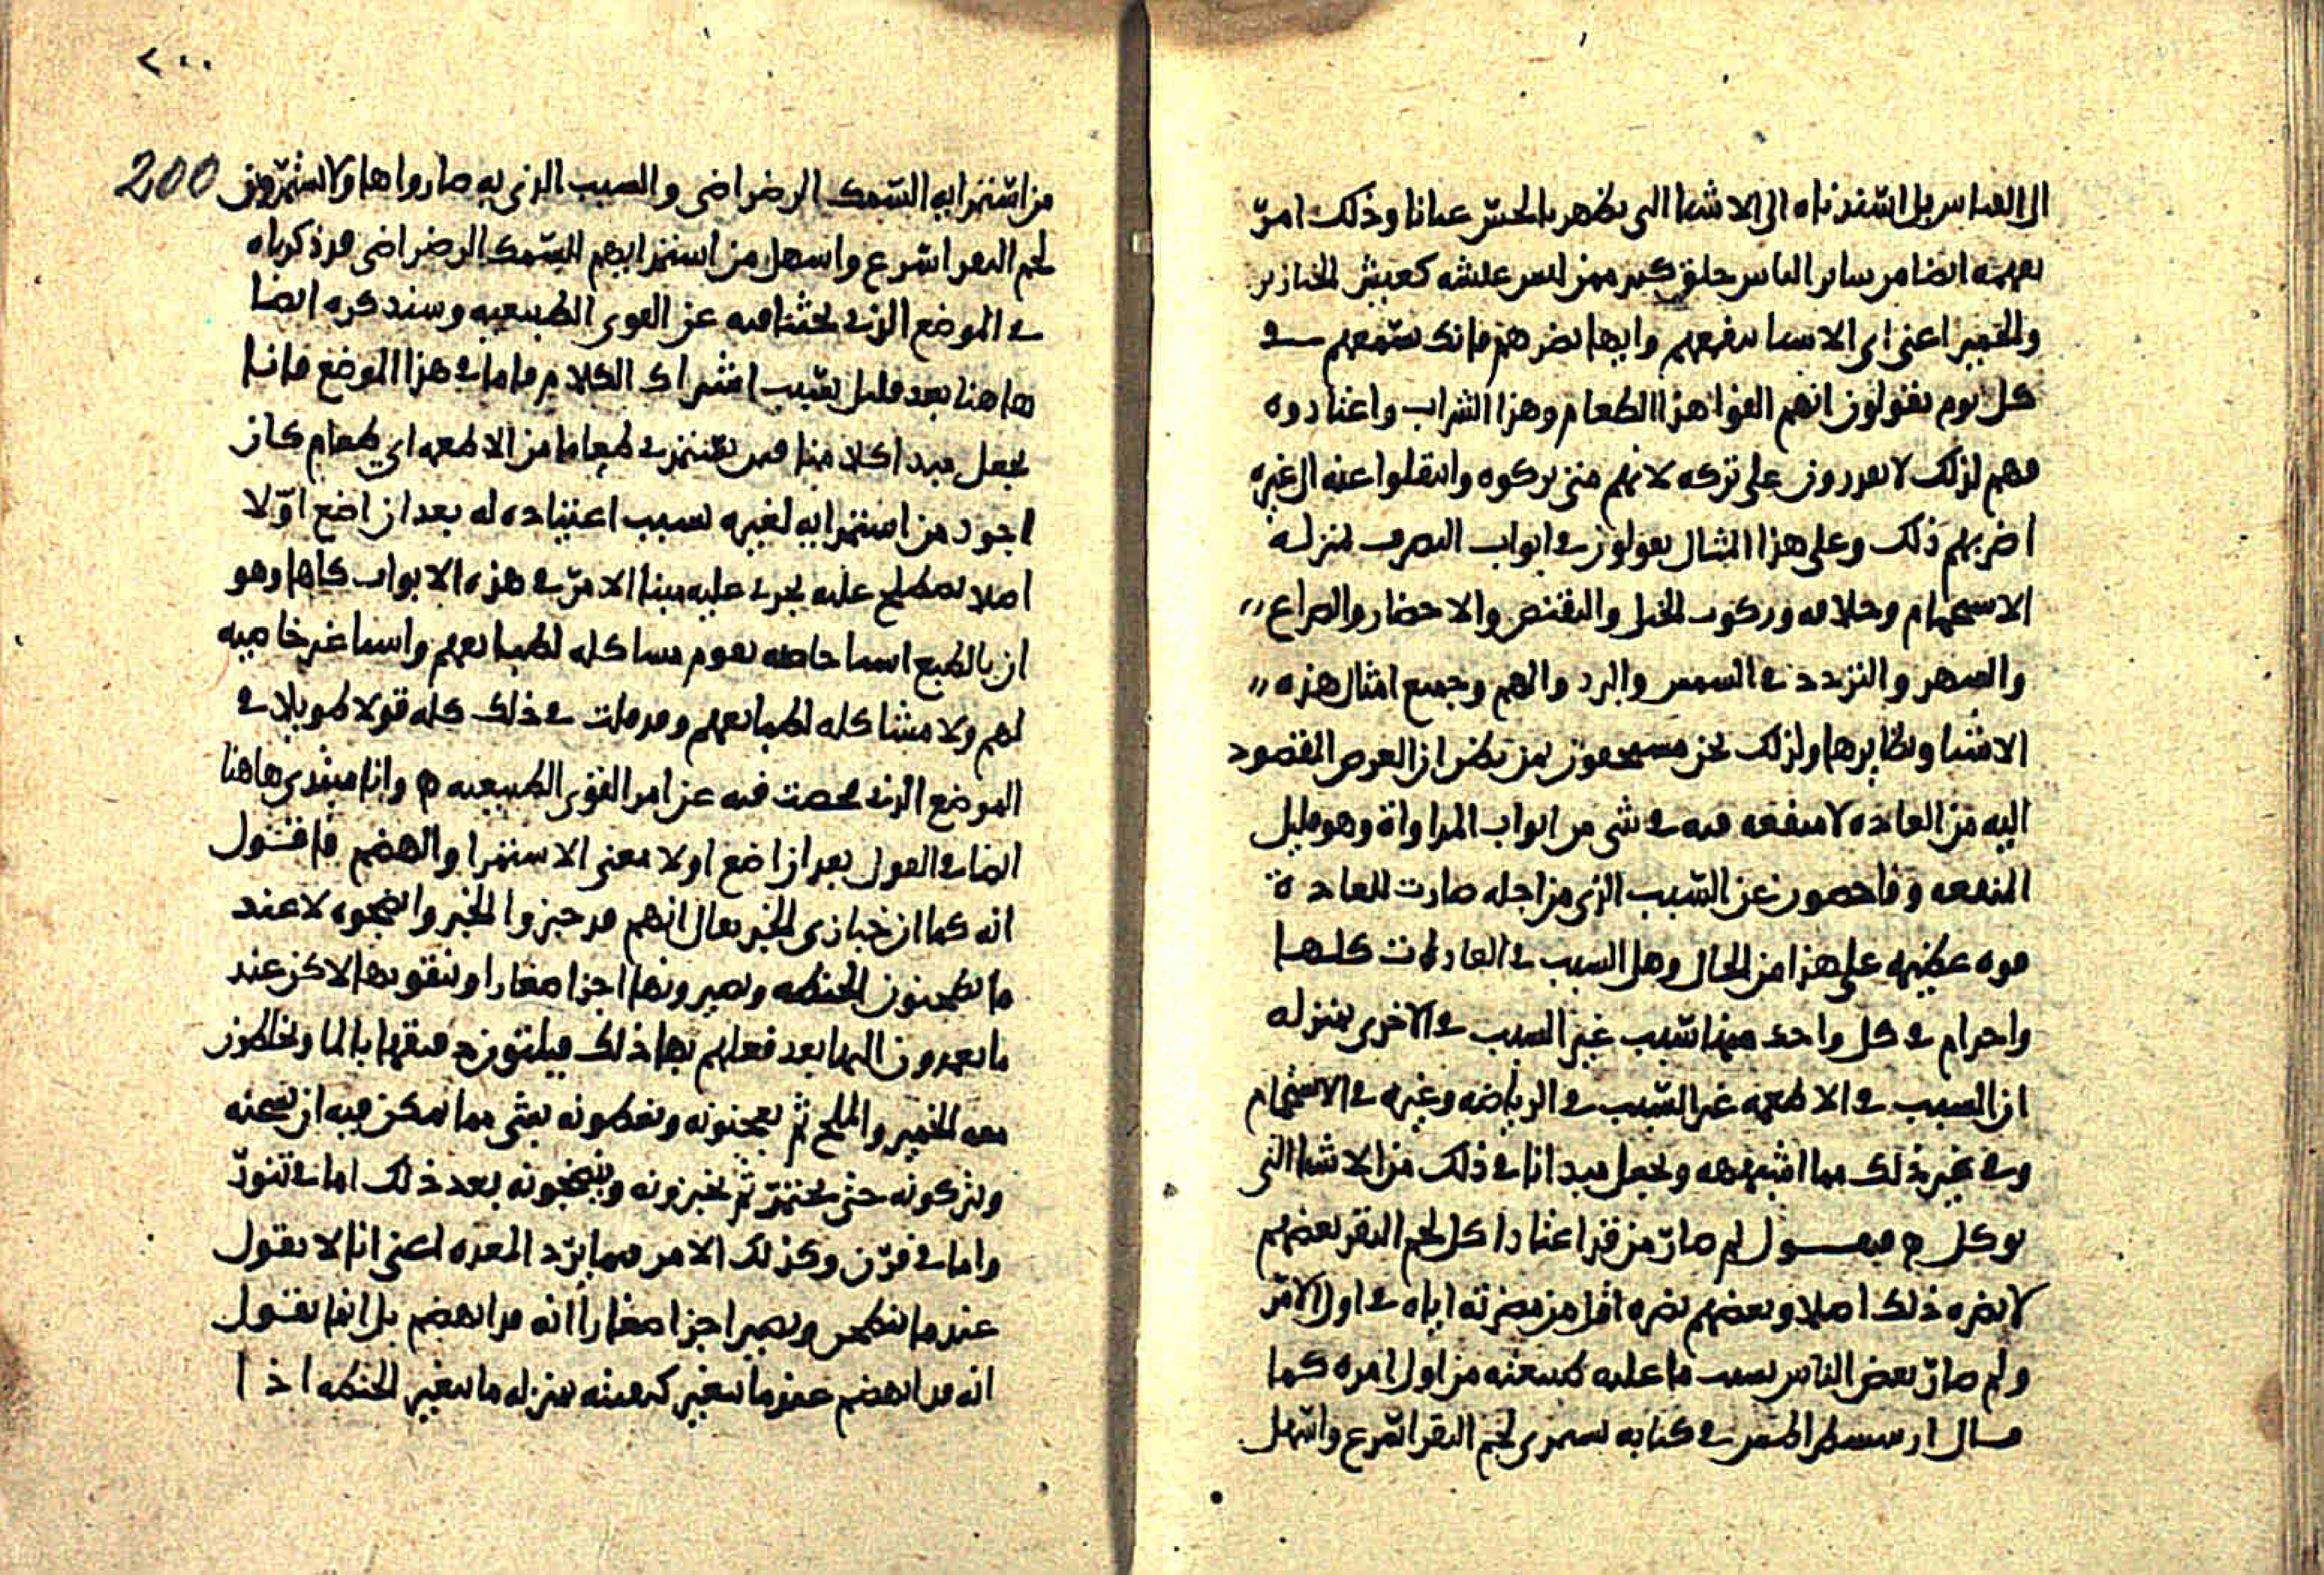 الى القياس بل اسندناه الى الاشيا التى تظهر بالحس عيانا وذلك امر
يفهمه ايضا من ساير الناس خلق كثير ممن ليس عيشه كعيش الخنازير
والحمير اعنى اى الاشيا ينفعهم وايها يضرهم فانك تسمعهم فى
كل يوم يقولون انهم الفوا هذا الطعام وهذا الشراب واعتادوه
فهم لذلك لا يقدرون على تركه لانهم متى تركوه وانتقلوا عنه الى غيره
اضر بهم ذلك وعلى هذا المثال يقولون فى ابواب التصرف بمنزلة
الاستحمام وخلافه وركوب الخيل والتقنص والاحضار والصراع
والسهر والتردد فى الشمس والبرد والهم وجميع امثال هذه
الاشيا ونظايرها ولذلك نحن مستجهلون من يظن ان الغرض المقصود
اليه من العاده لا منفعه فيه فى شى من ابواب المداواة وهو قليل
المنفعه وفاحصون عن السبب الذى من اجله صارت للعادة
قوه عظيمه على هذا من الحال وهل السبب فى العادات كلها
واحد ام فى كل واحده منها سبب غير السبب فى الاخرى بمنزله
ان السبب فى الاطعمه غير السبب فى الرياضه وغيره فى الاستحمام
وفى غير ذلك مما اشبهه ونجعل مبدانا فى ذلك من الاشيا التى
توكل ه فنقول لم صار من قد اعتاد اكل لحم البقر بعضهم
لا يضره ذلك اصلا وبعضهم يضره اقل من مضرته اياه فى اول الامر
ولم صار بعض الناس بسبب ما عليه طبيعته من اول امره كما
قال ارسسطراطس فى كتابه يستمرى لحم البقر اسرع واسهل
٢٠٠
200
من استمرايه السمك الرضراضى والسبب الذى به صاروا هاولا يستمرون
لحم البقر اسرع واسهل من استمرايهم السمك الرضراضى قد ذكرناه
فى الموضع الذى بحثنا فيه عن القوى الطبيعيه وسنذكره ايضا
هاهنا بعد قليل بسبب اشتراك الكلام فاما فى هذا الموضع فانا
نجعل مبدا كلامنا فيمن يستمرى طعاما من الاطعمه اى طعام كان
اجود من استمرايه لغيره لسبب اعتياده له بعد ان اضع اولا
اصلا نصطلح عليه يجرى عليه مبنا الامر فى هذه الابواب كلها وهو
ان بالطبع اشيا خاصه بقوم مشاكله لطبايعهم واشيا غير خاصيه
لهم ولا مشاكله لطبايعهم وقد قلت فى ذلك كله قولا طويلا فى
الموضع الذى فحصت فيه عن امر القوى الطبيعيه ه وانا مبتدى هاهنا
ايضا فى القول بعد ان اضع اولا معنى الاستمرا والهضم فاقول
انه كما ان خبازى الخبز يقال انهم قد خبزوا الخبز وانضجوه لا عند
ما يطحنون الحنطه ويصيرونها اجزا صغارا وينقونها لاكن عند
ما يعمدون اليها بعد فعلهم بها ذلك فيلتون دقيقها بالما ويخالطون
معه الخمير والملح ثم يعجنونه ويغطونه بشى مما يمكن فيه ان يسخنه
ويتركونه حتى يختمر ثم يخبزونه وينضجونه بعد ذلك اما فى تنور
واما فى فرن وكذلك الامر فيما يرد المعده اعنى انا لا نقول
عند ما ينطحن ويصير اجزا صغارا انه قد انهضم بل انما نقول
انه قد انهضم عند ما تتغير كيفيته بمنزله ما تتغير الحنطه اذا